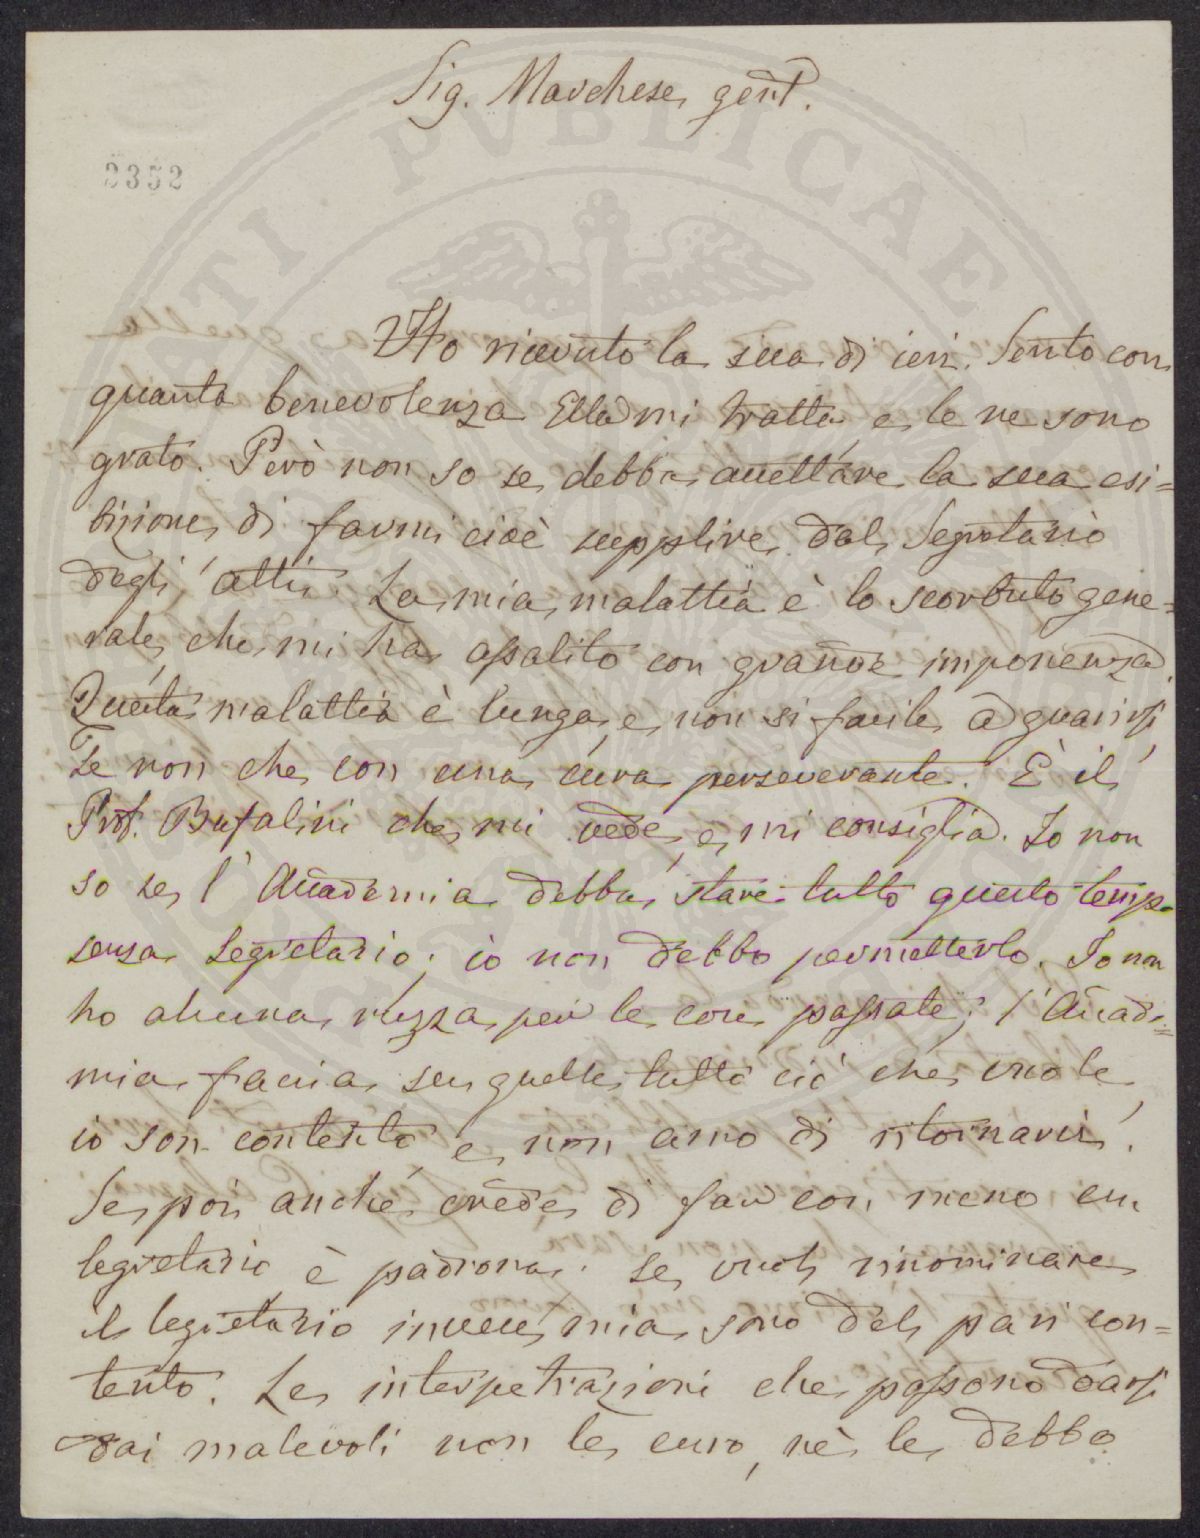 Sig. Marchese gent.
2352
ATI PVBLICAE
Ho ricevuto la sua di ieri. Sento con
quanta benevolenza Ella mi tratta, e le ne sono
grato. Però non so se debba accettare la sua esi=
bizione di farmi cioè supplire dal Segretario
degli atti. La mia malattia è lo scorbuto gene=
rale, che mi ha assalito con grande imponenza.
Questa malattia è lunga, e non si facile a guarirsi
se non che con una cura perseverante. È il
Prof. Bufalini che mi vede, e mi consiglia. Io non
so se l'Accademia debba stare tutto questo tempo
senza Segretario; io non debbo permetterlo. Io non
ho alcuna ruzza per le cose passate; l'Accade=
mia faccia su quelle tutto ciò che vuole,
io son contento, e non amo di ritornarvi.
Se poi anche crede di far con meno un
segretario è padrona. Se vuol rinominare
il segretario invece mia, sono del pari con=
tento. Le interpetrazioni che possono darsi
dai malevoli non le curo, nè le debbo